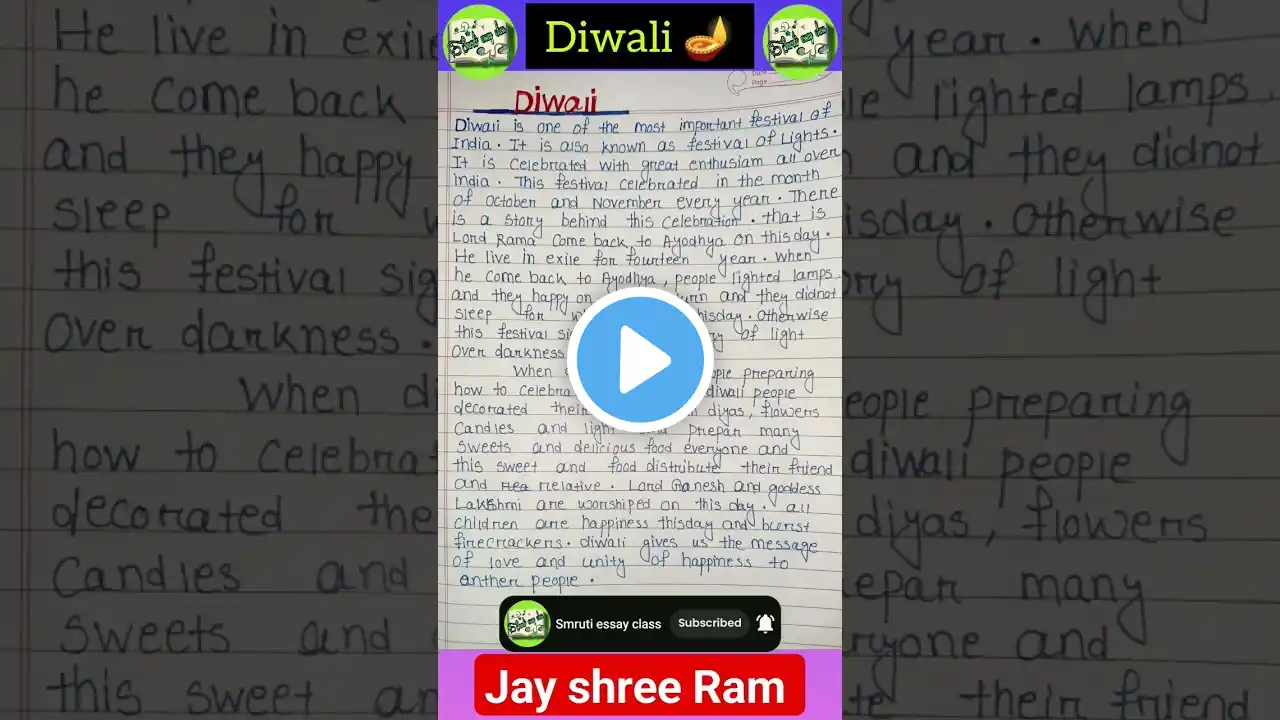 Diwali
Date
Page
Diwali
Diwali is one of the most important festival of
India. It is also known as festival of Lights.
It is celebrated with great enthusiam all over
India. This festival celebrated in the month
of October and November every year. There
is a story behind this celebration. that is
Lord Rama come back to Ayodhya on this day.
He live in exile for fourteen year. when
he come back to Ayodhya, people lighted lamps
and they happy on and they didnot
sleep for thisday. Otherwise
this festival of light
over darkness
When preparing
how to diwali people
decorated diyas, flowers
candles and prepar many
sweets and delicious food everyone and
this sweet and food distribute their friend
and relative. Lord Ganesh and goddess
Lakshmi are worshiped on this day. all
children are happiness thisday and burst
firecrackers. diwali gives us the message
of love and unity of happiness to
anther people.
Smruti essay class Subscribed
Jay shree Ram